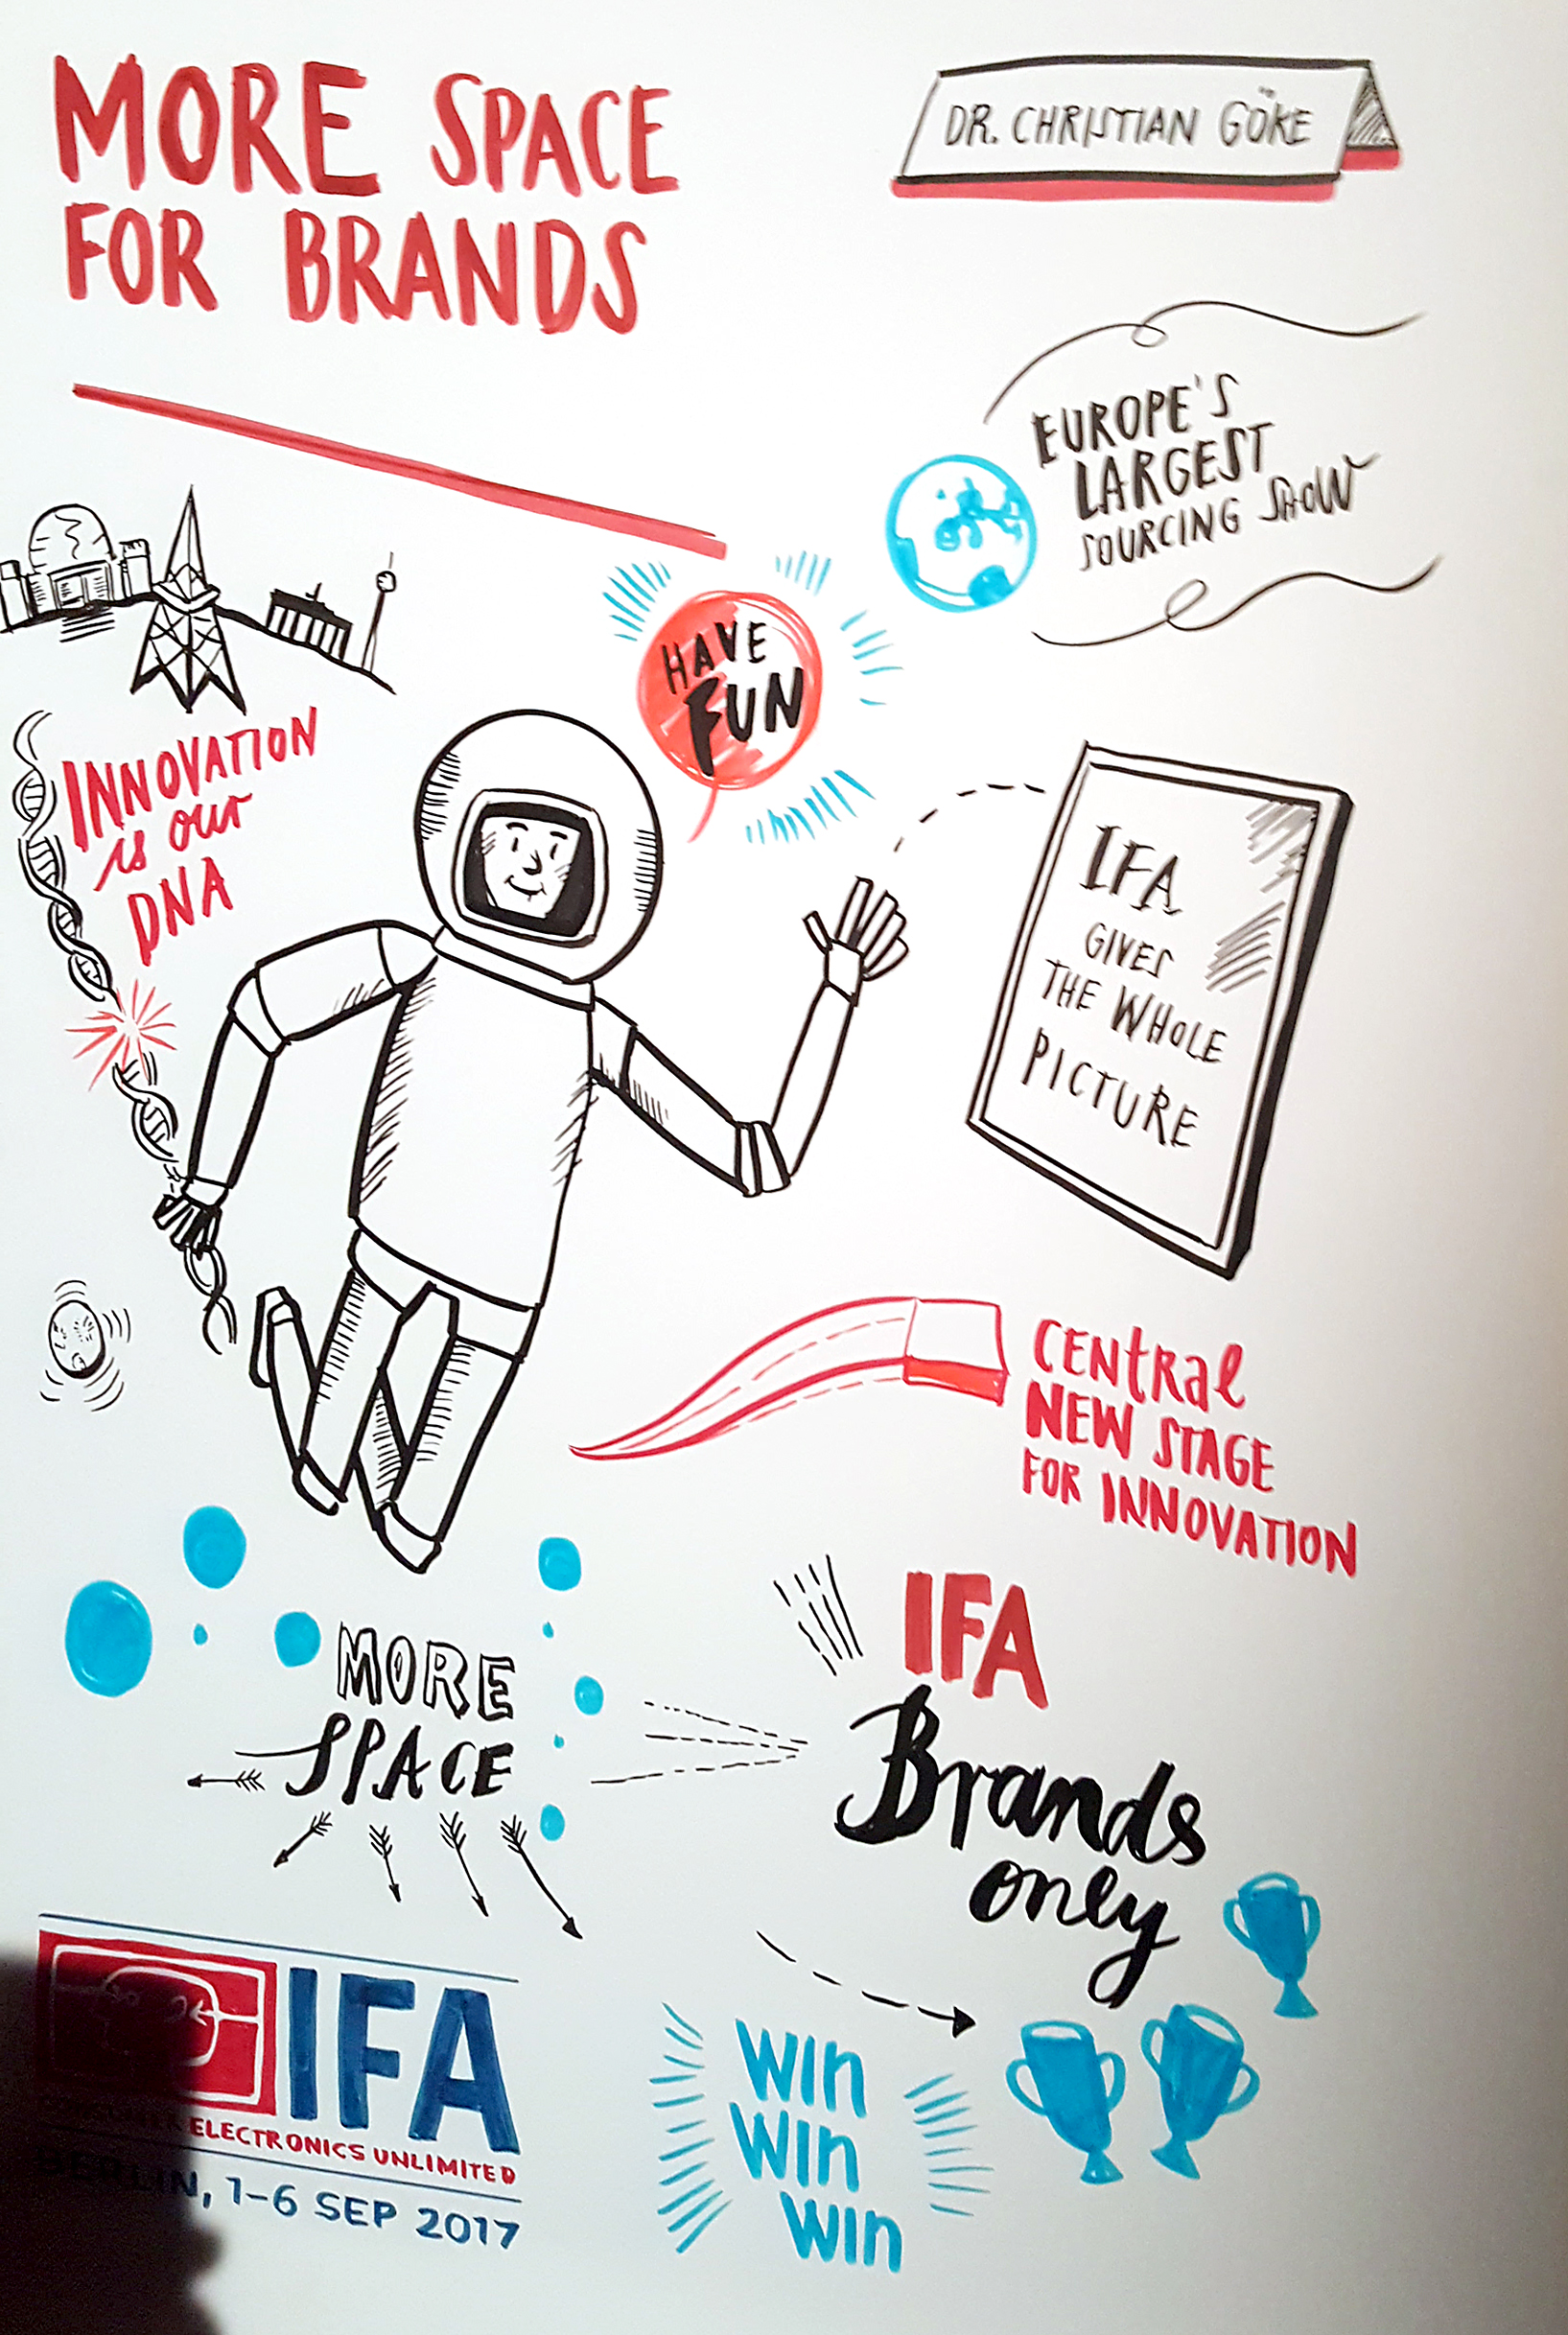 MORE SPACE
FOR BRANDS
DR. CHRISTIAN GÖKE
EUROPE'S
LARGEST
SOURCING SHOW
HAVE
FUN
INNOVATION
is our
DNA
IFA
GIVES
THE WHOLE
PICTURE
CENTRAL
NEW STAGE
FOR INNOVATION
MORE
SPACE
IFA
Brands
only
IFA
CONSUMER ELECTRONICS UNLIMITED
BERLIN, 1-6 SEP 2017
WIN
WIN
WIN